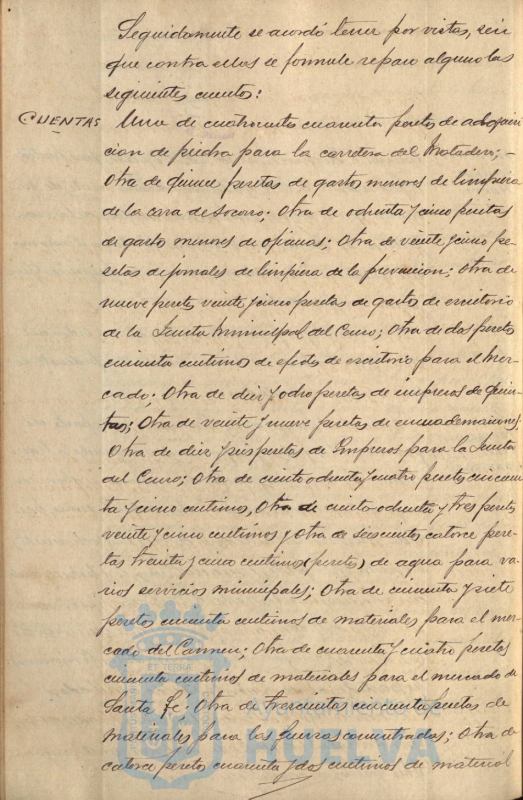 Seguidamente se acordó tener por vistas, sin
que contra ellas se formule reparo alguno las
siguientes cuentas:
CUENTAS
Una de cuatrocientas cuarenta pesetas de adquisi-
cion de piedra para la carretera del Matadero;-
Otra de quince pesetas de gastos menores de limpieza
de la casa de Socorro; Otra de ochenta y cinco pesetas
de gasto menores de oficinas; Otra de veinte y cinco pe-
setas de jornales de limpieza de la prevencion; Otra de
nueve pesetas veinte y cinco pesetas de gastos de escritorio
de la Junta Municipal del Censo; Otra de dos pesetas
cincuenta centimos de efectos de escritorio para el Mer-
cado; Otra de diez y ocho pesetas de impresos de Quin-
tas; Otra de veinte y nueve pesetas de encuadernaciones;
Otra de diez y seis pesetas de Impresos para la Junta
del Censo; Otra de ciento ochenta y cuatro pesetas cincuen-
ta y cinco centimos, Otra de ciento ochenta y tres pesetas
veinte y cinco centimos y Otra de seiscientas catorce pese-
tas treinta y cinco centimos (pesetas) de agua para va-
rios servicios municipales; Otra de cincuenta y siete
pesetas cincuenta centimos de materiales para el mer-
cado del Carmen; Otra de cuarenta y cuatro pesetas
cincuenta centimos de materiales para el mercado de
Santa Fé: Otra de trescientas cincuenta pesetas de
materiales para las fuerzas concentradas; Otra de
catorce pesetas cuarenta y dos centimos de material
ET TERRAE
Ayuntamiento de
HUELVA